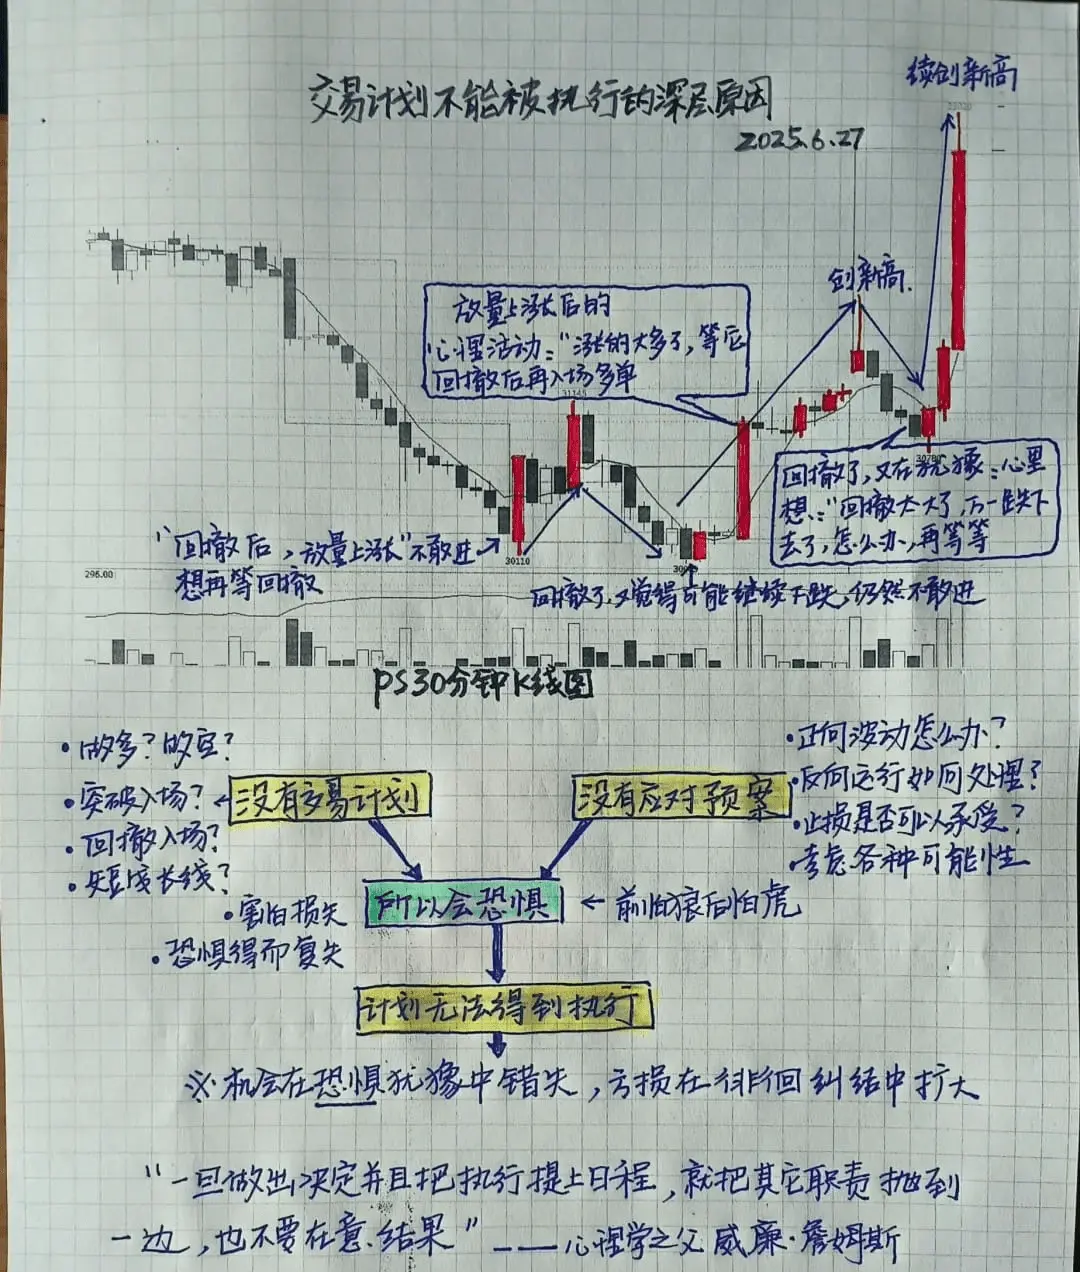 续创新高
交易计划不能被执行的深层原因
2025.6.27
创新高.
放量上涨后的
心理活动:“涨的太多了,等后
回撤后再入场多单
31145
回撤了,又在犹豫:心里
想:“回撤太大了,万一跌下
去了,怎么办,再等等
“回撤后,放量上涨”不敢进
想再等回撤
30110
295.00
回撤了,又觉得可能继续下跌,仍然不敢进
PS30分钟K线图
·做多?做空?
·突破入场?
·回撤入场?
·短线长线?
没有交易计划
没有应对预案
·正向波动怎么办?
·反向运行如何处理?
·止损是否可以承受?
·考虑各种可能性
·害怕损失
·恐惧得而复失
所以会恐惧
←前怕狼后怕虎
计划无法得到执行
※机会在恐惧犹豫中错失,亏损在徘徊纠结中扩大
“一旦做出决定并且把执行提上日程,就把其它职责抛到
一边,也不要在意.结果”——心理学之父威廉·詹姆斯